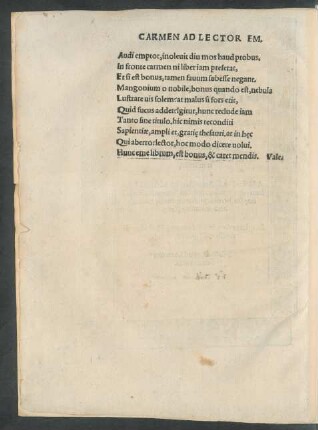 CARMEN AD LECTOREM.
Audi emptor, inoleuit diu mos haud probus,
In fronte carmen ni liber iam preferat,
Et si est bonus, tamen fauum sabesse negant.
Mangonium o nobile, bonus quando est, nebula
Lustrare uis solem: at malus si fors erit,
Quid fucus addet? igitur, hunc reclude iam
Tanto sine titulo, hic nimis recondiui
Sapientiæ, ampli et gratiq thesauri, ac in hęc
Qui aberro? lector, hoc modo dicere uolui.
Hunc eme librum, est bonus, & caret mendis. Vale